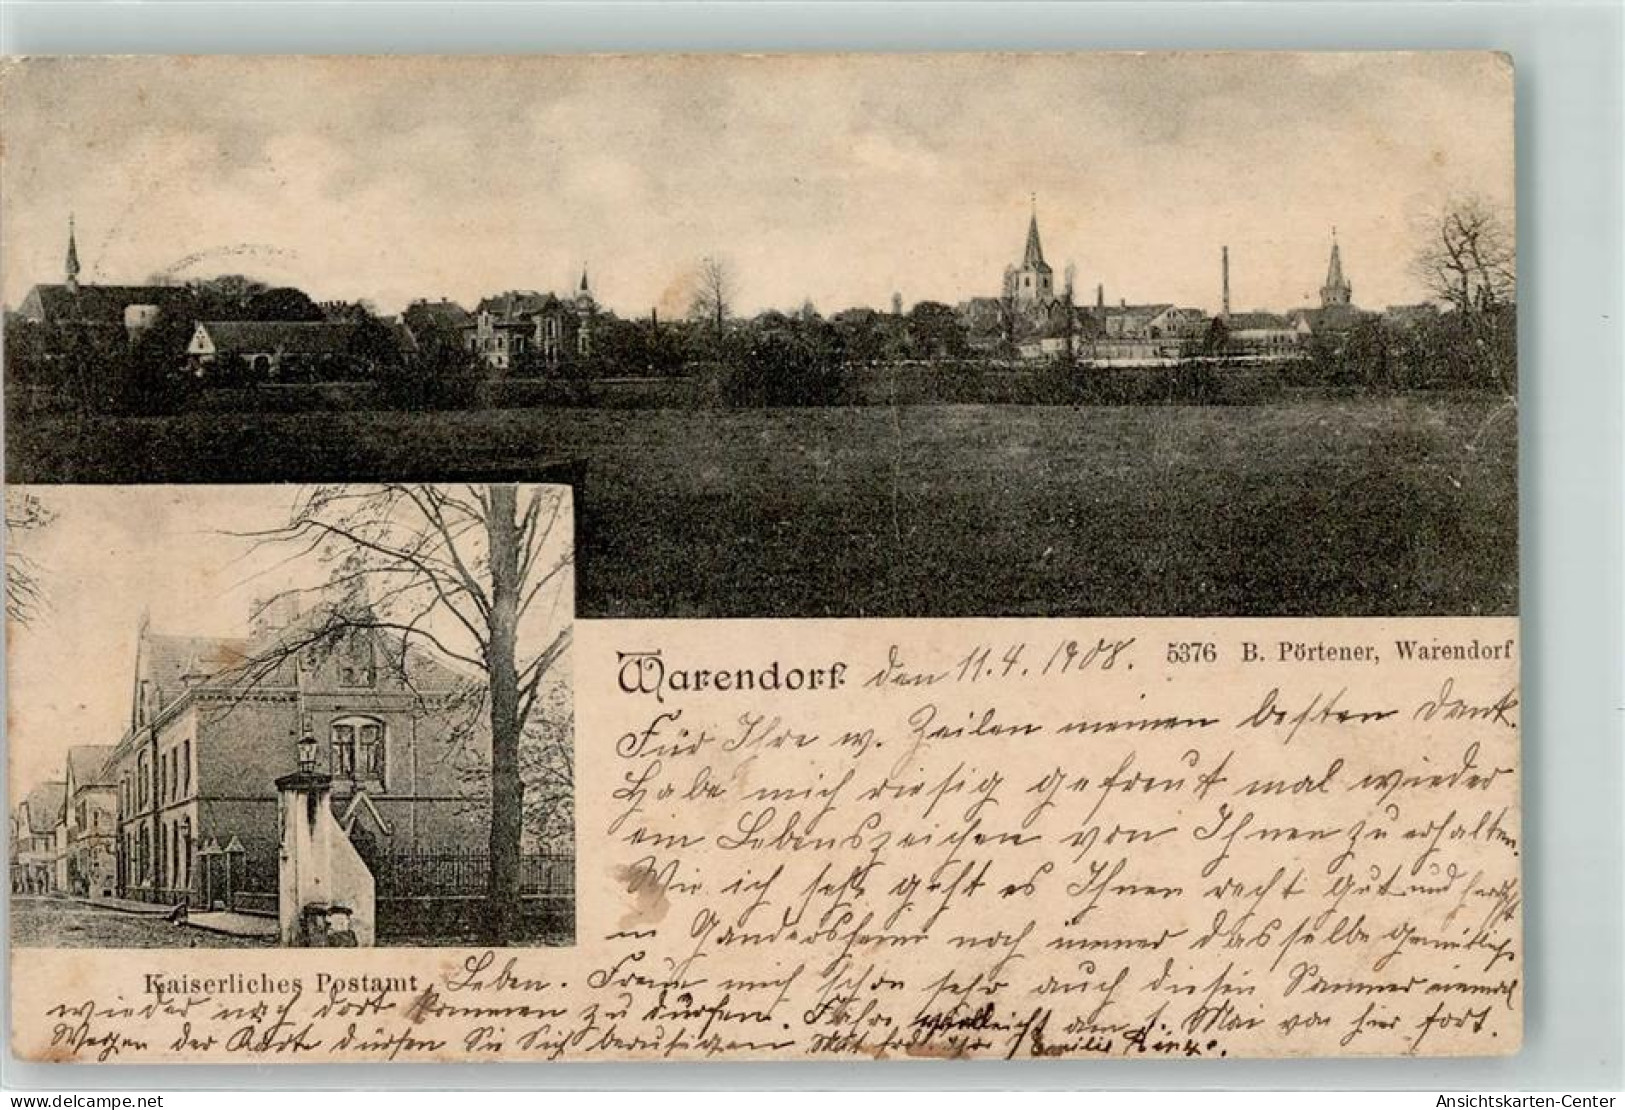 Warendorf den 11.4.1908. 5376 B. Pörtener, Warendorf
Für Ihre w. Zeilen meinen besten Dank.
Habe mich riesig gefreut mal wieder
ein Lebenszeichen von Ihnen zu erhalten.
Wie ich sehe geht es Ihnen recht gut und herrscht
in Gandersheim noch immer dasselbe gemütliche
Kaiserliches Postamt Leben. Freue mich schon sehr auch diesen Sommer einmal
wieder nach dort kommen zu dürfen. Fahre vielleicht am 1. Mai von hier fort.
Wegen der Karte dürfen Sie Sich beruhigen Mit Emilie
Ansichtskarten-Center
https://www.delcampe.net